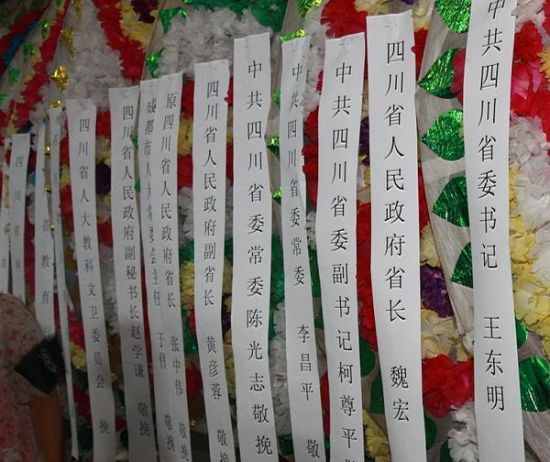 中共四川省委书记 王东明
四川省人民政府省长 魏宏
中共四川省委副书记柯尊平 敬
中共四川省委常委 李昌平 敬
中共四川省委常委陈光志 敬挽
四川省人民政府副省长 黄彦蓉 敬挽
原四川省人民政府省长 张中伟 敬挽
成都市人大常委会主任 于伟 敬挽
四川省人民政府副秘书长赵学谦 敬挽
四川省人大教科文卫委员会 挽
省教育厅
四川省